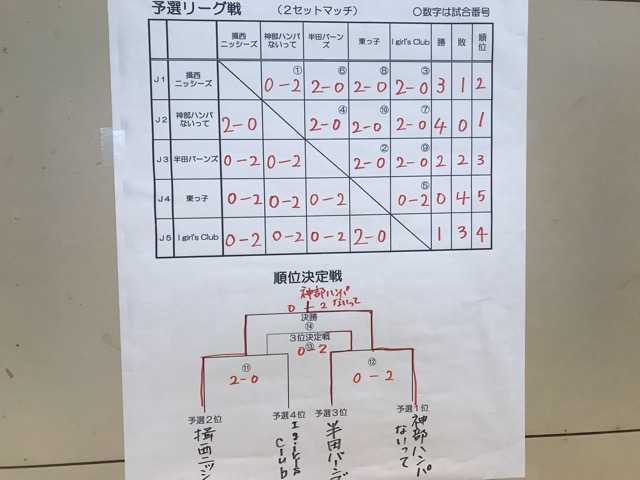 予選リーグ戦 （２セットマッチ） 〇数字は試合番号
揖西ニッシーズ 神部ハンパないって 半田バーンズ 東っ子 I girl's Club 勝 敗 順位
J1 揖西ニッシーズ ① 0-2 ⑥ 2-0 ⑧ 2-0 ③ 2-0 3 1 2
J2 神部ハンパないって 2-0 ④ 2-0 ⑩ 2-0 ⑦ 2-0 4 0 1
J3 半田バーンズ 0-2 0-2 ② 2-0 ⑨ 2-0 2 2 3
J4 東っ子 0-2 0-2 0-2 ⑤ 0-2 0 4 5
J5 I girl's Club 0-2 0-2 0-2 2-0 1 3 4
順位決定戦
神部ハンパないって
0 2
決勝
⑭
３位決定戦
⑬
0-2
⑪ ⑫
2-0 0-2
予選２位 予選４位 予選３位 予選１位
揖西ニッシ I girl's Club 半田バーンズ 神部ハンパないって